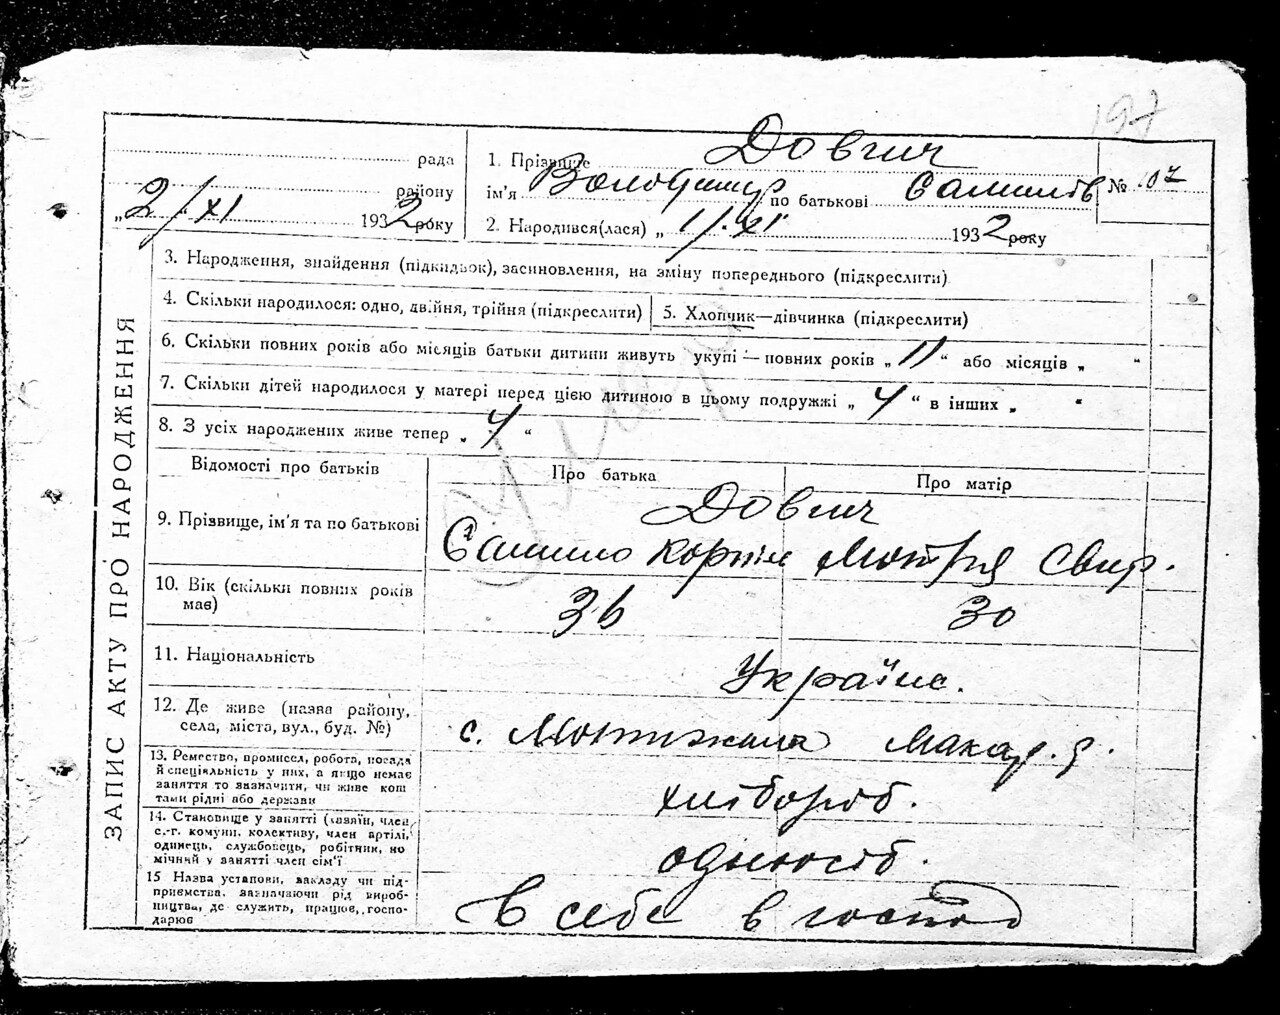 197
рада
району
„2/XI 1932 року
1. Прізвище Довгич
ім'я Володимир по батькові Самійлів
№ 107
2. Народився(лася) „1/XI 1932 року
ЗАПИС АКТУ ПРО НАРОДЖЕННЯ
3. Народження, знайдення (підкидьок), засиновлення, на зміну попереднього (підкреслити)
4. Скільки народилося: одно, двійня, трійня (підкреслити)
5. Хлопчик—дівчинка (підкреслити)
6. Скільки повних років або місяців батьки дитини живуть укупі — повних років „ 11 “ або місяців „ “
7. Скільки дітей народилося у матері перед цією дитиною в цьому подружжі „ 4 “ в інших „ “
8. З усіх народжених живе тепер „ 4 “
Помер
Відомості про батьків
Про батька
Про матір
9. Прізвище, ім'я та по батькові
Довгич
Самійло Корнін Мотря Свир.
10. Вік (скільки повних років
має)
36
30
11. Національність
Україн.
12. Де живе (назва району,
села, міста, вул., буд. №)
с. Мотижина Макар. р.
13. Ремество, промисел, робота, посада
й спеціяльність у них, а якщо немає
заняття то зазначити, чи живе кош
тами рідні або держави
хлібороб.
14. Становище у занятті (хазяїн, член
с.-г. комуни, колективу, член артілі,
одинець, службовець, робітник, но
мічний у занятті член сім'ї
одноосіб.
15 Назва установи, закладу чи під-
приємства, зазначаючи рід вироб-
ництва, де служить, працює, госпо-
дарює
в себе в господ